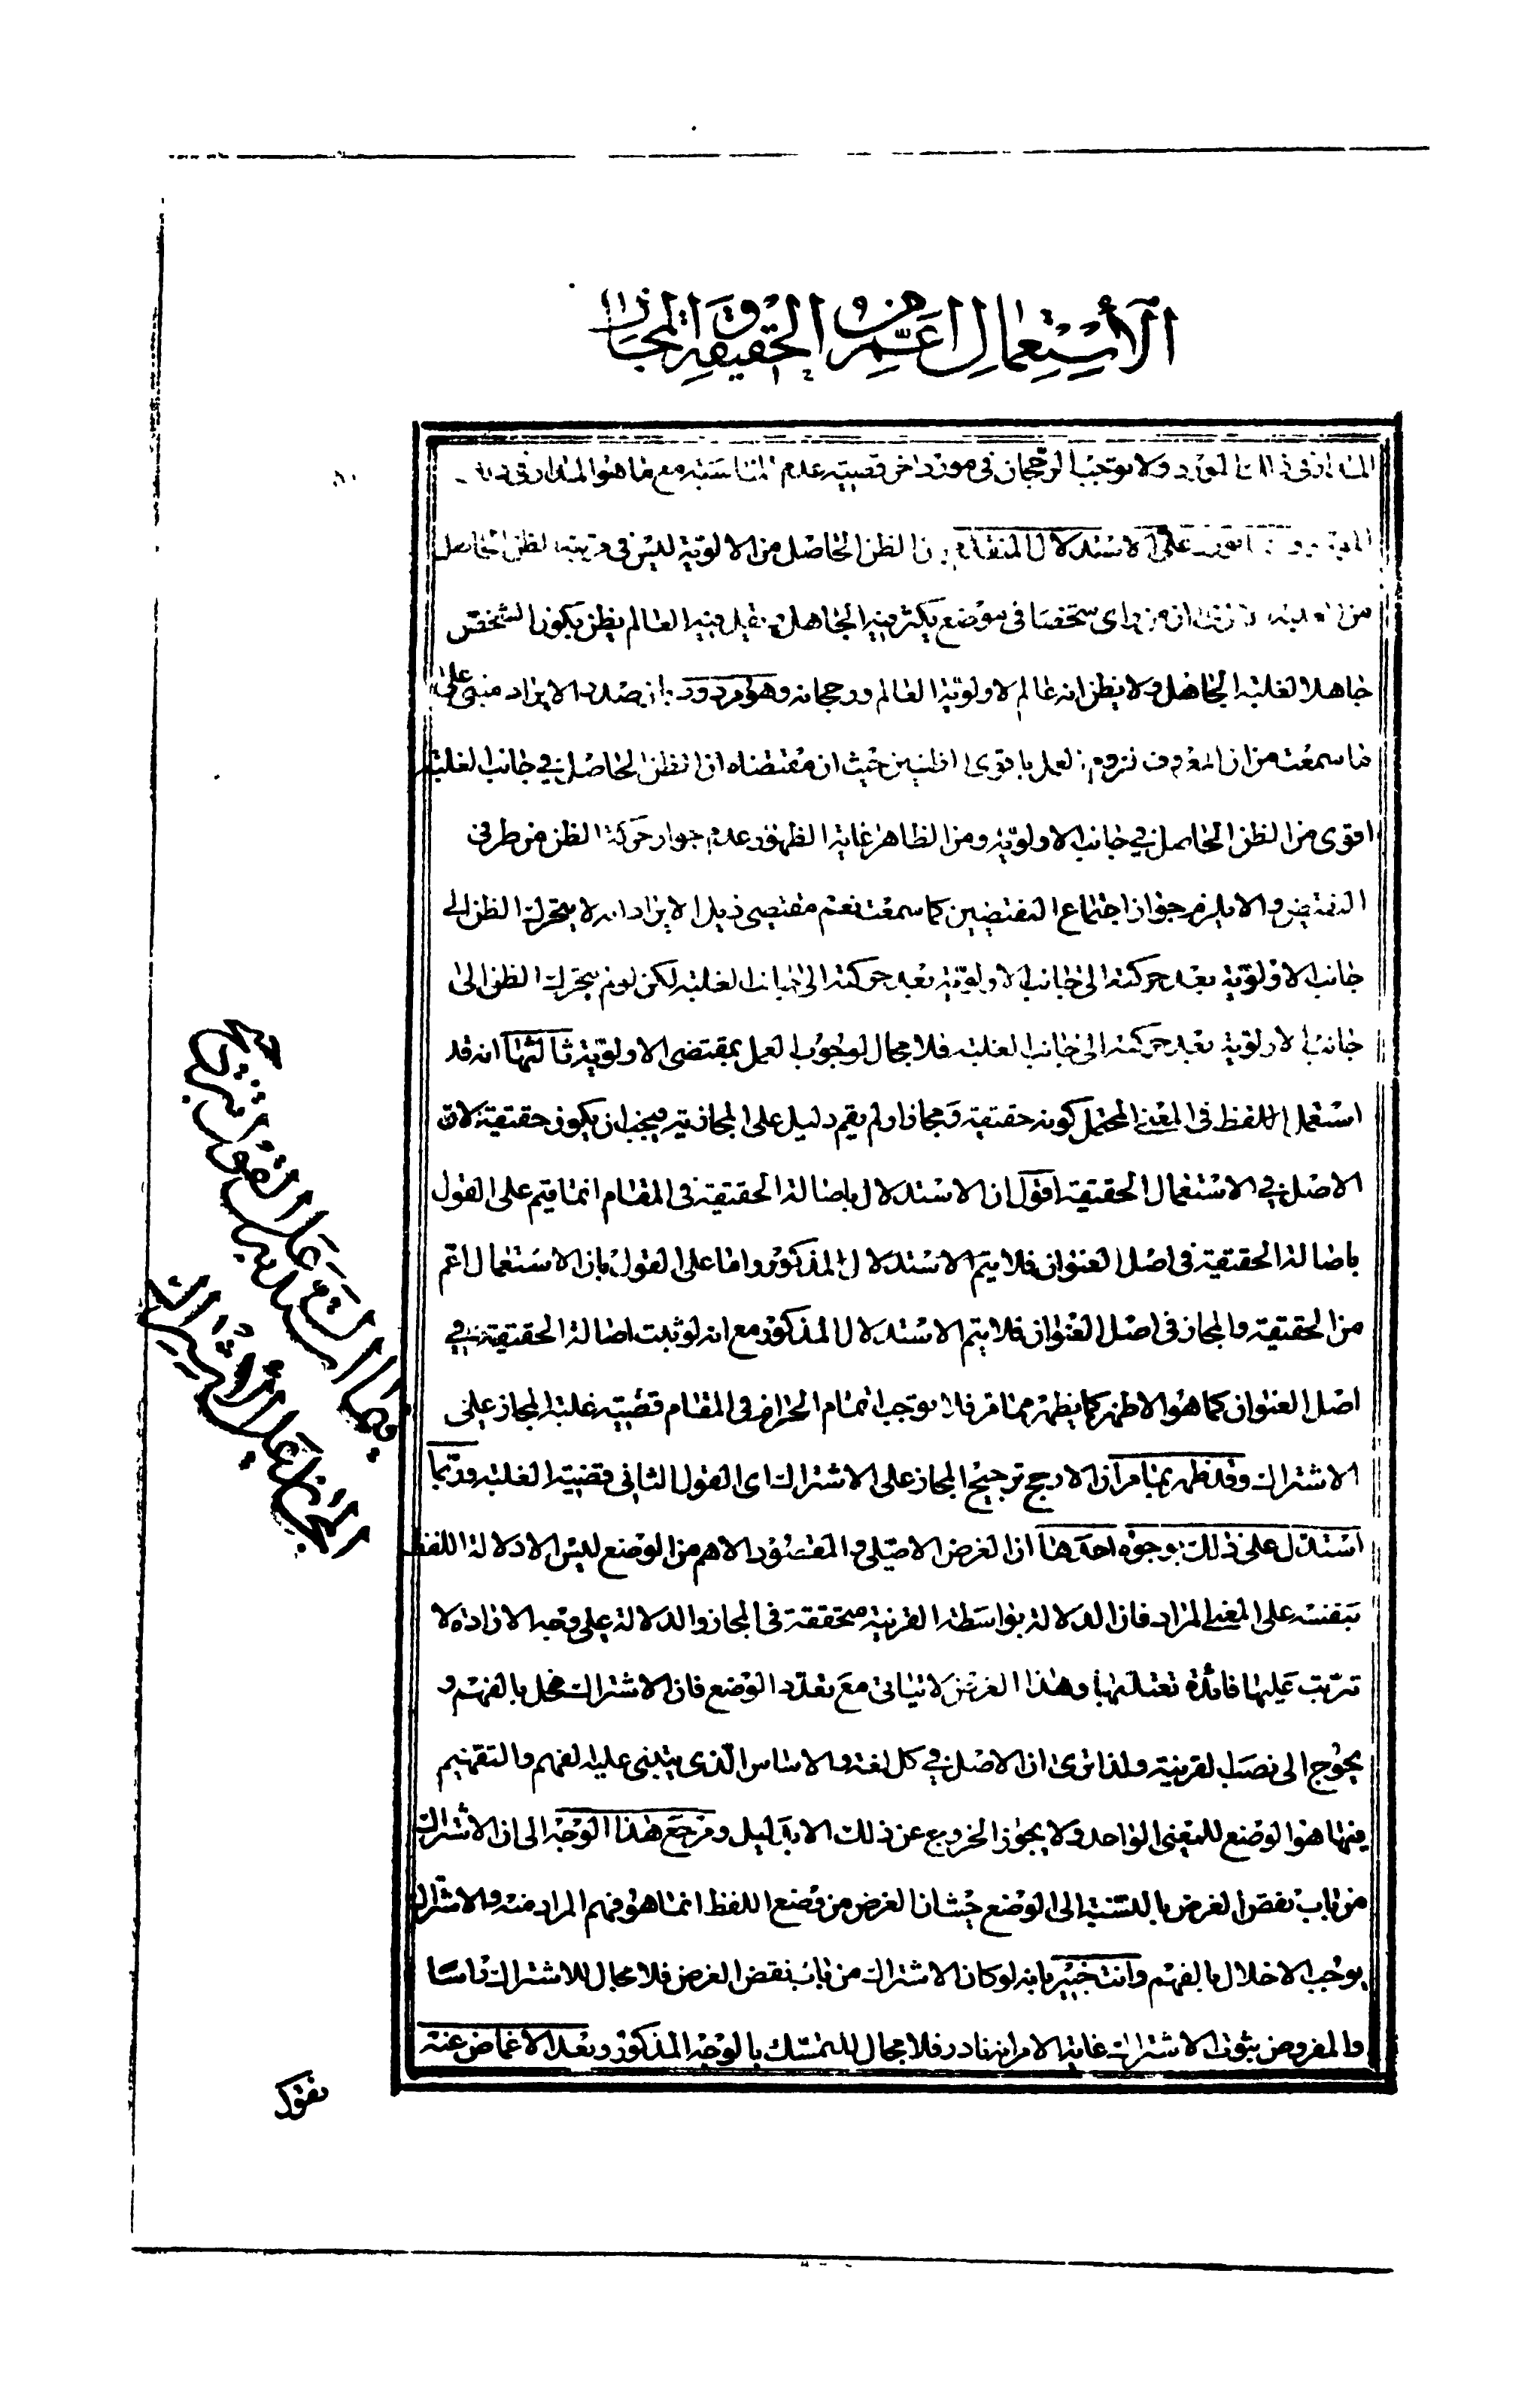 الاستعمال اعم من الحقيقة و المجاز
فى ذلك المورد ولا يوجب الرجحان فى مورد اخر قضيته عدم المناسبة مع ما هو المدار فى
على الاستدلال المتقدم ان الظن الحاصل من الاولوية ليس فى مرتبة الظن الحاصل
من الغلبة ان من راى شخصا فى موضع يكثر فيه الجاهل و يقل فيه العالم يظن بكون الشخص
جاهلا لغلبة الجاهل ولا يظن انه عالم لاولوية العالم ورجحانه وهو مردود بان صدر الايراد مبنى على
ما سمعت من ان المعروف لزوم العمل باقوى الظنين حيث ان مقتضاه ان الظن الحاصل فى جانب الغلبة
اقوى من الظن الحاصل فى جانب الاولوية ومن الظاهر غاية الظهور عدم جواز حركة الظن من طرفى
النقيض والا يلزم جواز اجتماع النقيضين كما سمعت نعم مقتضى ذيل الايراد انه لا يتحرك الظن الى
جانب الاولوية بعد حركته الى جانب الاولوية بعد حركته الى جانب الغلبة لكن لو لم يتحرك الظن الى
جانب الاولوية بعد حركته الى جانب الغلبة فلا مجال لوجوب العمل بمقتضى الاولوية ثالثها انه قد
استعمل اللفظ فى المعنى المحتمل كونه حقيقة ومجازا ولم يقم دليل على المجازية فيجب ان يكون حقيقة لان
الاصل فى الاستعمال الحقيقة اقول ان الاستدلال باصالة الحقيقة فى المقام انما يتم على القول
باصالة الحقيقة فى اصل العنوان فلا يتم الاستدلال المذكور واما على القول بان الاستعمال اعم
من الحقيقة والمجاز فى اصل العنوان فلا يتم الاستدلال المذكور مع انه لو ثبت اصالة الحقيقة فى
اصل العنوان كما هو الاظهر كما يظهر مما مر فلا يوجب اتمام المرام فى المقام قضية غلبة المجاز على
الاشتراك وقد ظهر بما مر ان الارجح ترجيح المجاز على الاشتراك اى القول الثانى قضية الغلبة وربما
استدل على ذلك بوجوه احدها ان الغرض الاصلى والمقصود الاهم من الوضع ليس الا دلالة اللفظ
بنفسه على المعنى المراد فان الدلالة بواسطة القرينة متحققة فى المجاز والدلالة على وجه الارادة لا
تترتب عليها فائدة تعتد بها وهذا الغرض لا يتاتى مع تعدد الوضع فان الاشتراك مخل بالفهم و
يحوج الى نصب القرينة ولذا ترى ان الاصل فى كل لغة والاساس الذى يبتنى عليه الفهم والتفهيم
فيها هو الوضع للمعنى الواحد ولا يجوز الخروج عن ذلك الا بدليل ومرجع هذا الوجه الى ان الاشتراك
من باب نقض الغرض بالنسبة الى الوضع حيث ان الغرض من وضع اللفظ انما هو فهم المراد منه والاشتراك
يوجب الاخلال بالفهم وانت خبير بانه لو كان الاشتراك من باب نقض الغرض فلا مجال للاشتراك راسا
والمفروض ثبوت الاشتراك غاية الامر انه نادر فلا مجال للتمسك بالوجه المذكور وبعد الاغماض عنه
على القول بترجيح
المجاز على الاشتراك
نقول